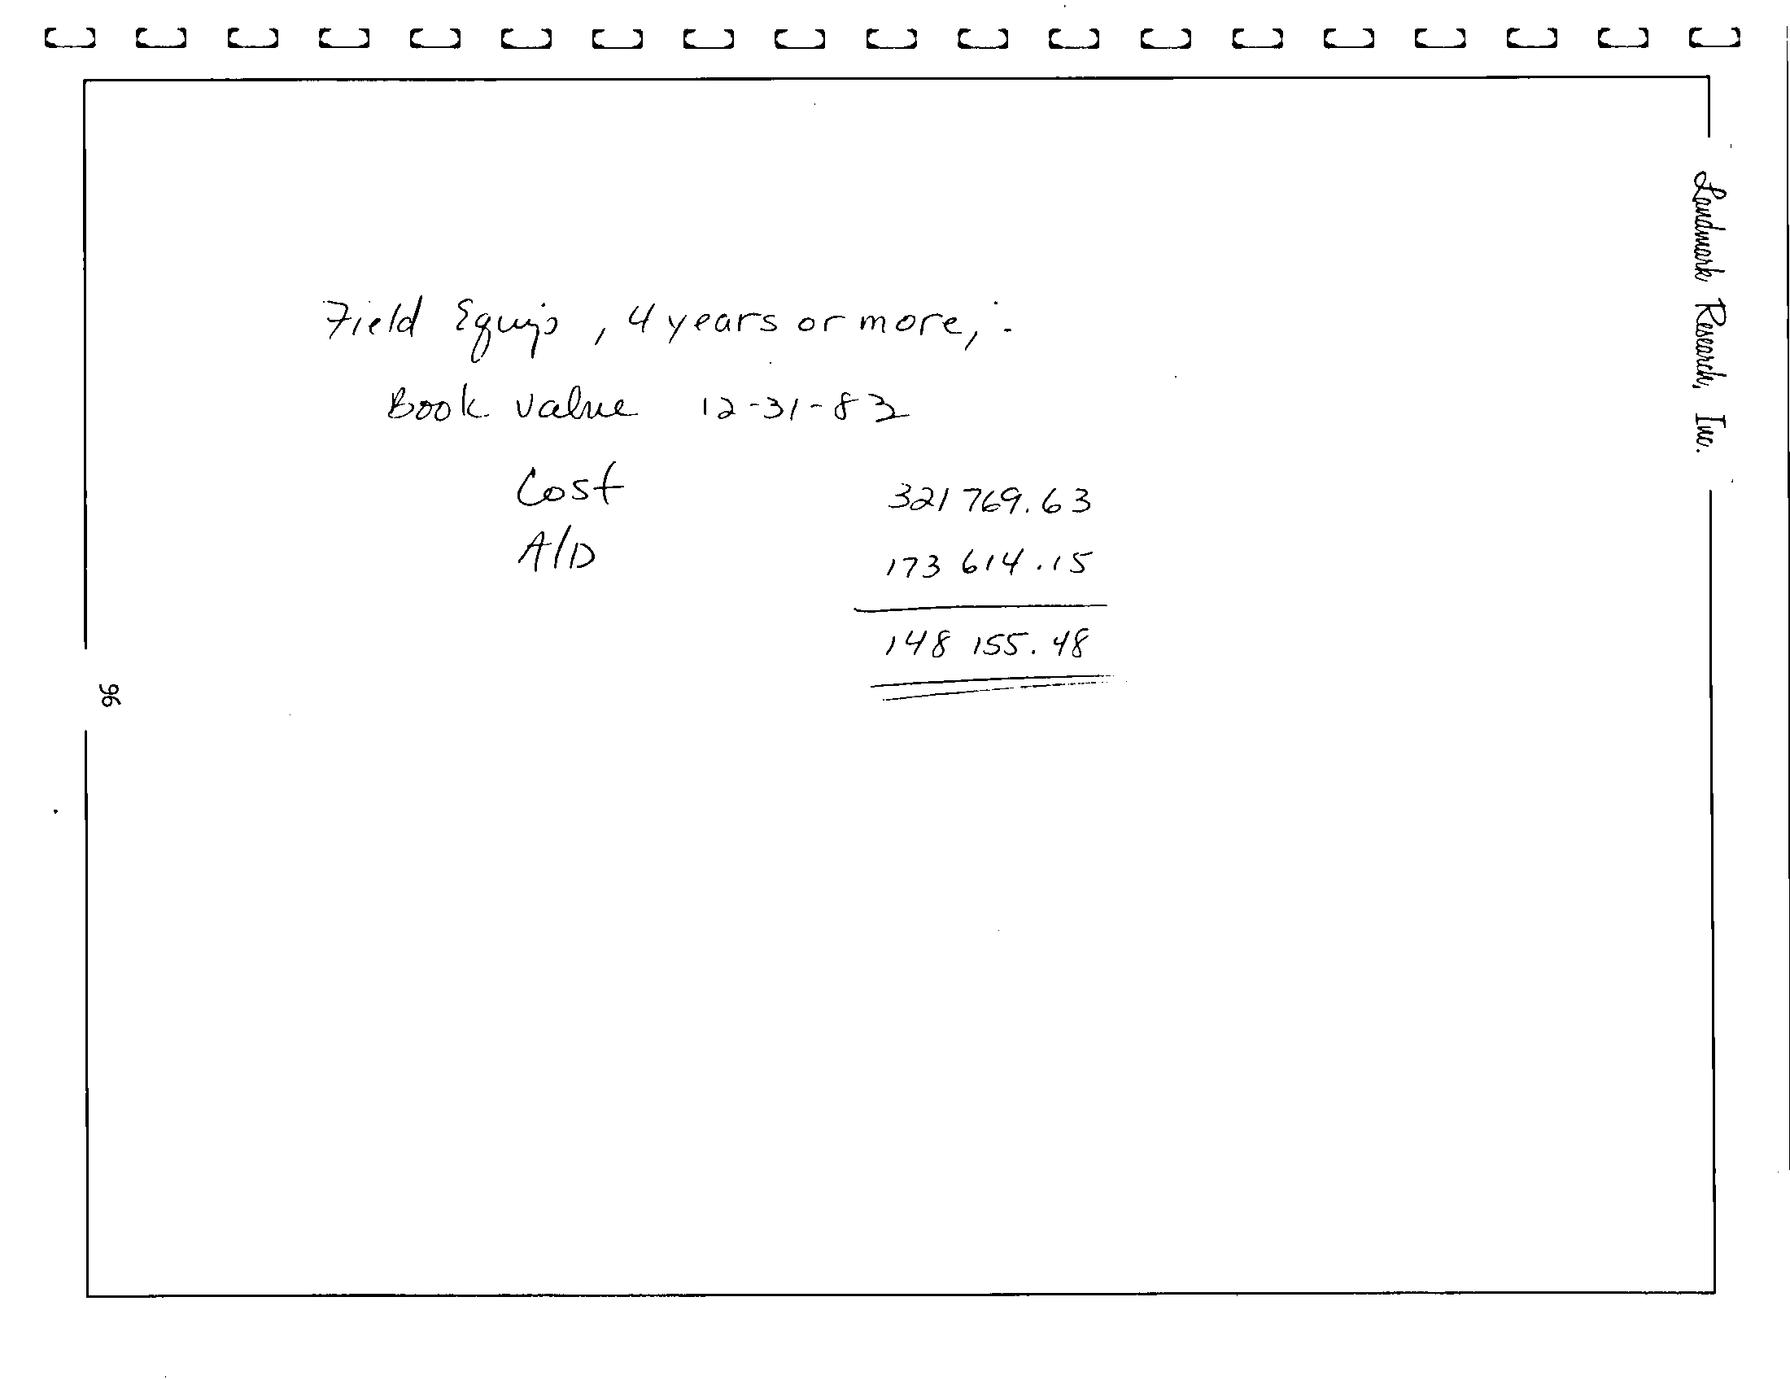 Field Equip, 4 years or more,:-
Book Value 12-31-83
Cost 321 769.63
A/D 173 614.15
148 155.48
Landmark Research, Inc.
96